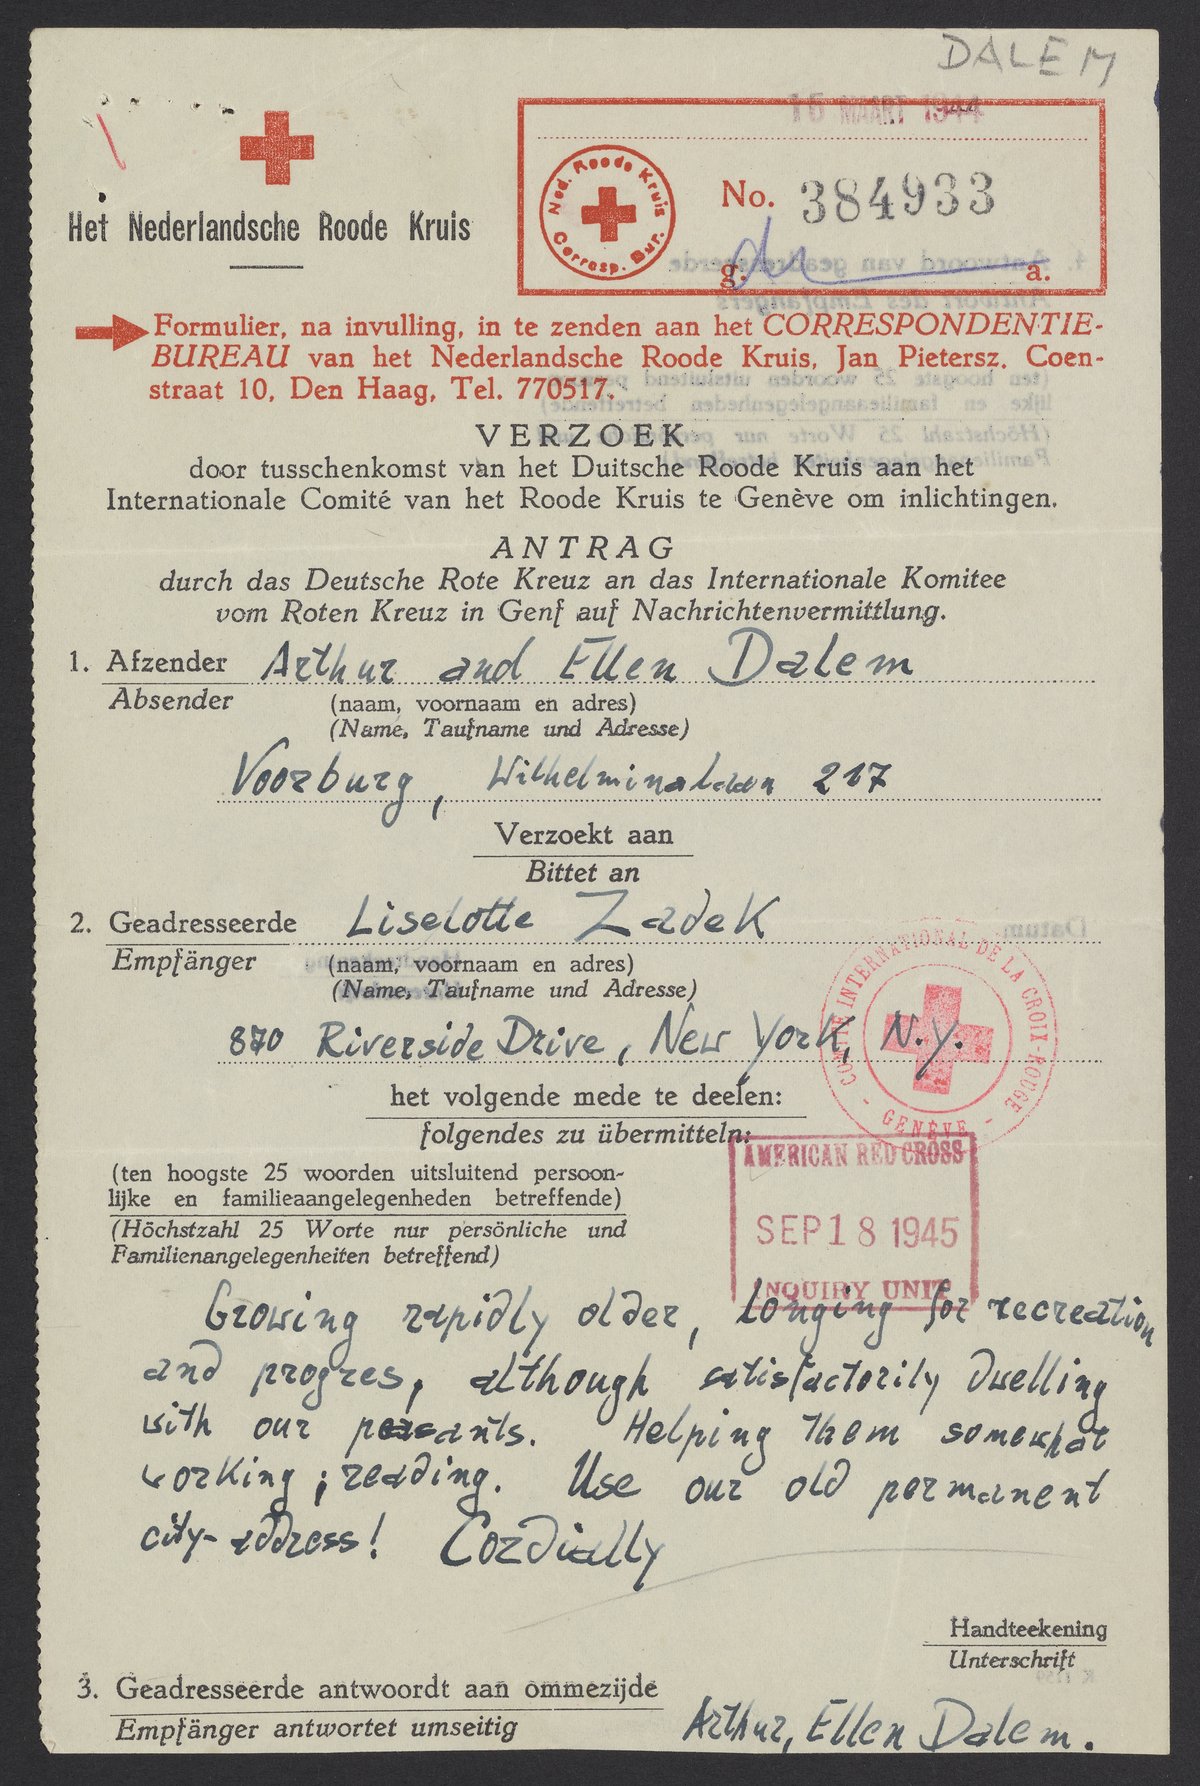 DALEM
16 MAART 1944
Het Nederlandsche Roode Kruis
Ned. Roode Kruis
Corresp. Bur.
No. 384933
g. a.
Formulier, na invulling, in te zenden aan het CORRESPONDENTIE-
BUREAU van het Nederlandsche Roode Kruis, Jan Pietersz. Coen-
straat 10, Den Haag, Tel. 770517.
VERZOEK
door tusschenkomst van het Duitsche Roode Kruis aan het
Internationale Comité van het Roode Kruis te Genève om inlichtingen.
ANTRAG
durch das Deutsche Rote Kreuz an das Internationale Komitee
vom Roten Kreuz in Genf auf Nachrichtenvermittlung.
1. Afzender Arthur and Ellen Dalem
Absender (naam, voornaam en adres)
(Name, Taufname und Adresse)
Voorburg, Wilhelminalaan 217
Verzoekt aan
Bittet an
2. Geadresseerde Liselotte Zadek
Empfänger (naam, voornaam en adres)
(Name, Taufname und Adresse)
870 Riverside Drive, New York, N.Y.
COMITÉ INTERNATIONAL DE LA CROIX-ROUGE
- GENÈVE -
het volgende mede te deelen:
folgendes zu übermitteln:
(ten hoogste 25 woorden uitsluitend persoon-
lijke en familieaangelegenheden betreffende)
(Höchstzahl 25 Worte nur persönliche und
Familienangelegenheiten betreffend)
AMERICAN RED CROSS
SEP 18 1945
INQUIRY UNIT
Growing rapidly older, longing for recreation
and progres, although satisfactorily dwelling
with our peasants. Helping them somewhat
working; reading. Use our old permanent
city-address! Cordially
Handteekening
Unterschrift
3. Geadresseerde antwoordt aan ommezijde
Empfänger antwortet umseitig
Arthur, Ellen Dalem.